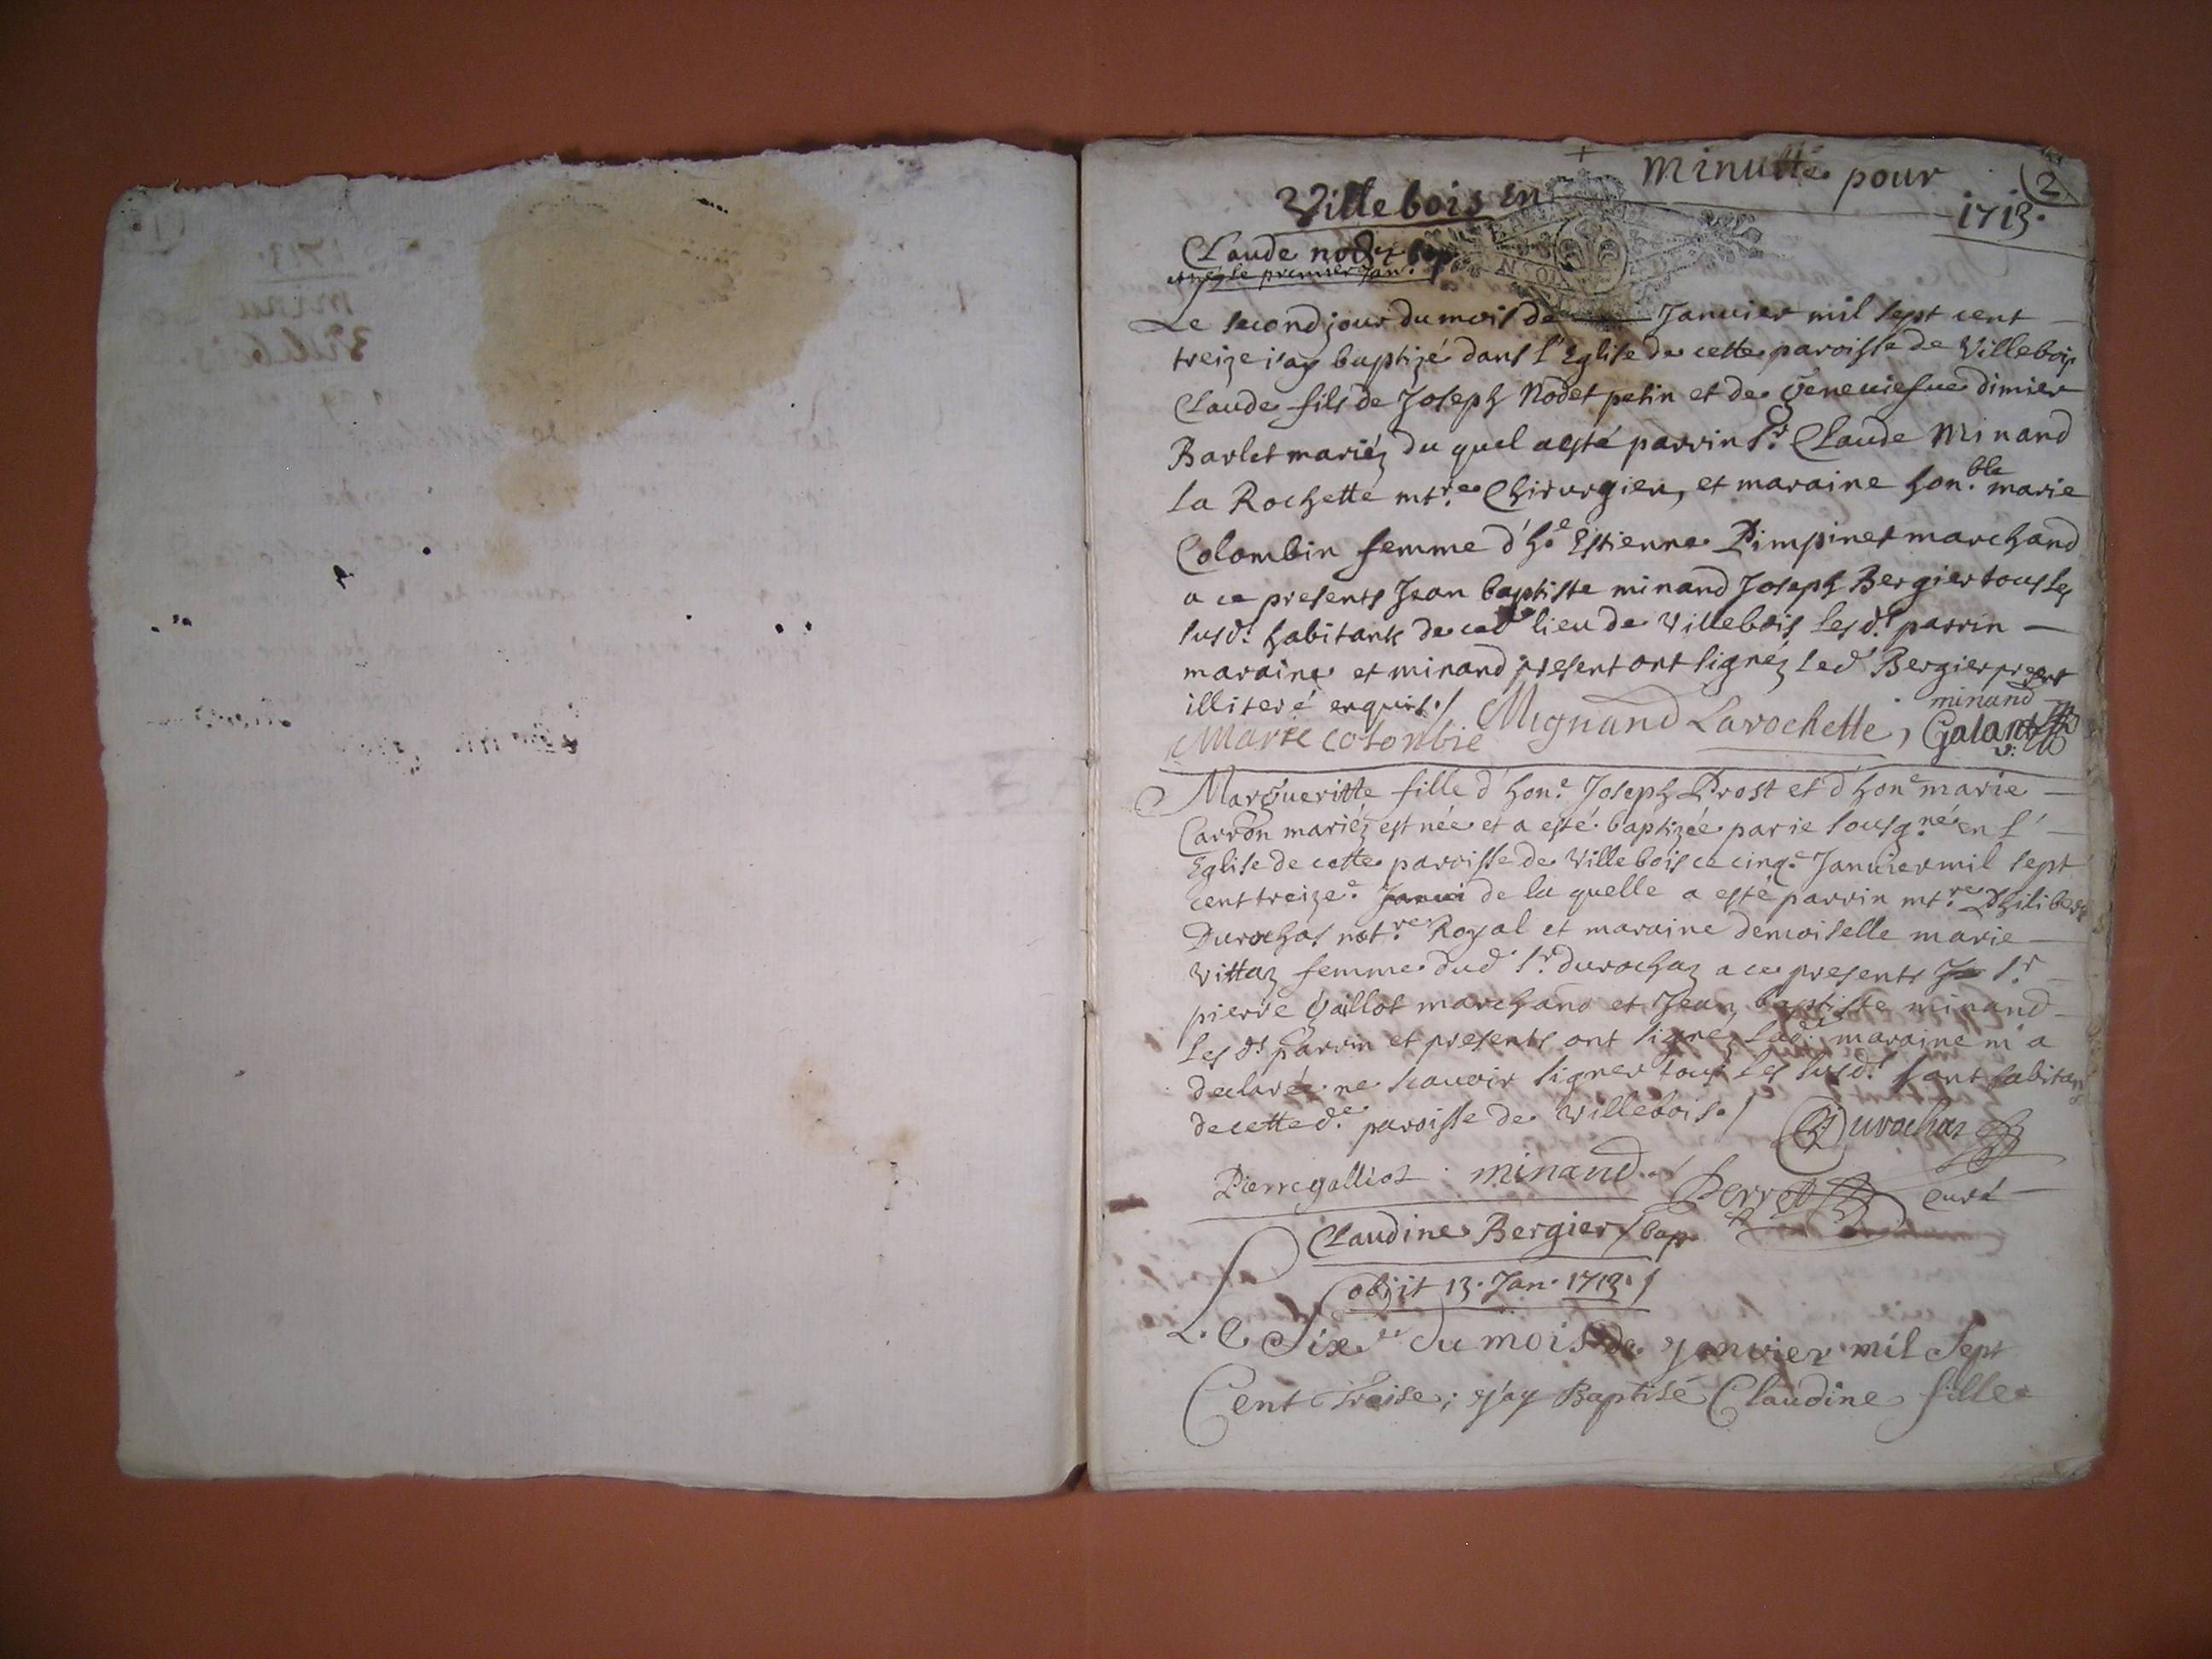 minutte pour
2
Villebois en
1713.
Claude nodet bap
et né le premier Jan.
Le second jour du mois de Januier mil sept cent
treize i'ay baptizé dans l'Eglise de cette paroisse de Villebois
Claude fils de Joseph Nodet petin et de Geneuiefue dimier
Barlet mariéz du quel a esté parrin Sr. Claude Minand
la Rochette mtre. Chirurgien, et maraine hon.ble marie
Colombin femme d'he. Estienne Pimpinet marchand
a ce presents Jean baptiste minand Joseph Bergier tous les
susd. habitants de ced. lieu de Villebois lesd. parrin
maraine et minand present ont signéz led Bergier present
illiteré enquis./ minand
Marie colonbie Mignand Larochette, Galant v:
Margueritte fille d'hone. Joseph Prost et d'hone marie
Carron mariéz est née et a esté baptizée par ie sousgné. en l'
Eglise de cette paroisse de Villebois ce cinqe. Januier mil sept
cent treize. Janui de la quelle a esté parrin mtre. Philibert
Durochas notre. Royal et maraine demoiselle marie
Vittaz femme dud Sr. durochaz a ce presents Je Sr.
pierre Gaillot marchand et Jean baptiste minand
Les ds. parrin et presents ont signez lad. maraine m'a
declarée ne scauoir signer tous les susd. sont habitans
de cette de. paroisse de Villebois./ Durochas
Pierre galliot minand. Perret curé
Claudine Bergier / bap
obiit 13. Jan. 1713./
Le Sixe. du mois de Janvier mil Sept
Cent Treise; J'ay Baptisé Claudine fille